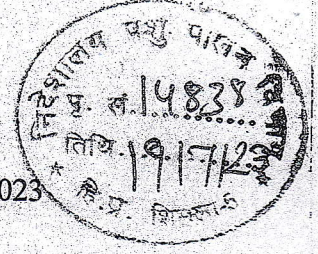 निदेशालय पशु पालन
पृ. सं. 14838
तिथि. 19/7/2
023
हि.प्र. शिमला-5